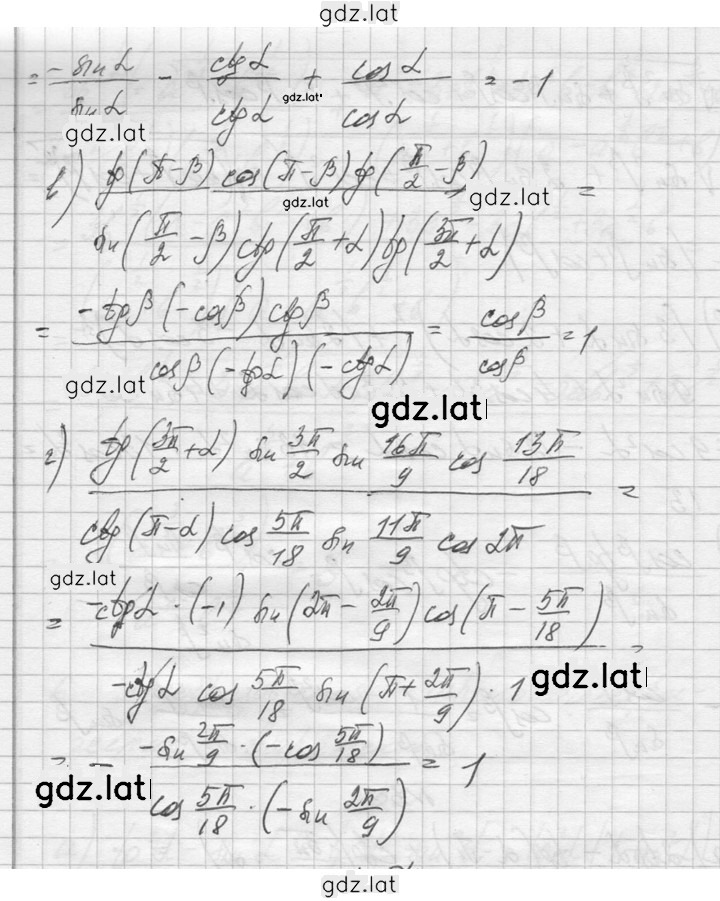 gdz.lat
= -sin α / sin α - ctg α / ctg α + cos α / cos α = -1
gdz.lat
gdz.lat
в) tg(π-β) cos(π-β) tg(π/2 - β) / sin(π/2 - β) ctg(π/2 + α) tg(3π/2 + α) =
gdz.lat
gdz.lat
= -tgβ (-cosβ) ctgβ / cosβ (-tgα) (-ctgα) = cosβ / cosβ = 1
gdz.lat
gdz.lat
г) tg(3π/2 + α) sin 3π/2 sin 16π/9 cos 13π/18 / ctg(π-α) cos 5π/18 sin 11π/9 cos 2π =
gdz.lat
= -ctgα · (-1) sin(2π - 2π/9) cos(π - 5π/18) / -ctgα cos 5π/18 sin(π + 2π/9) · 1 =
gdz.lat
= - -sin 2π/9 · (-cos 5π/18) / cos 5π/18 · (-sin 2π/9) = 1
gdz.lat
gdz.lat